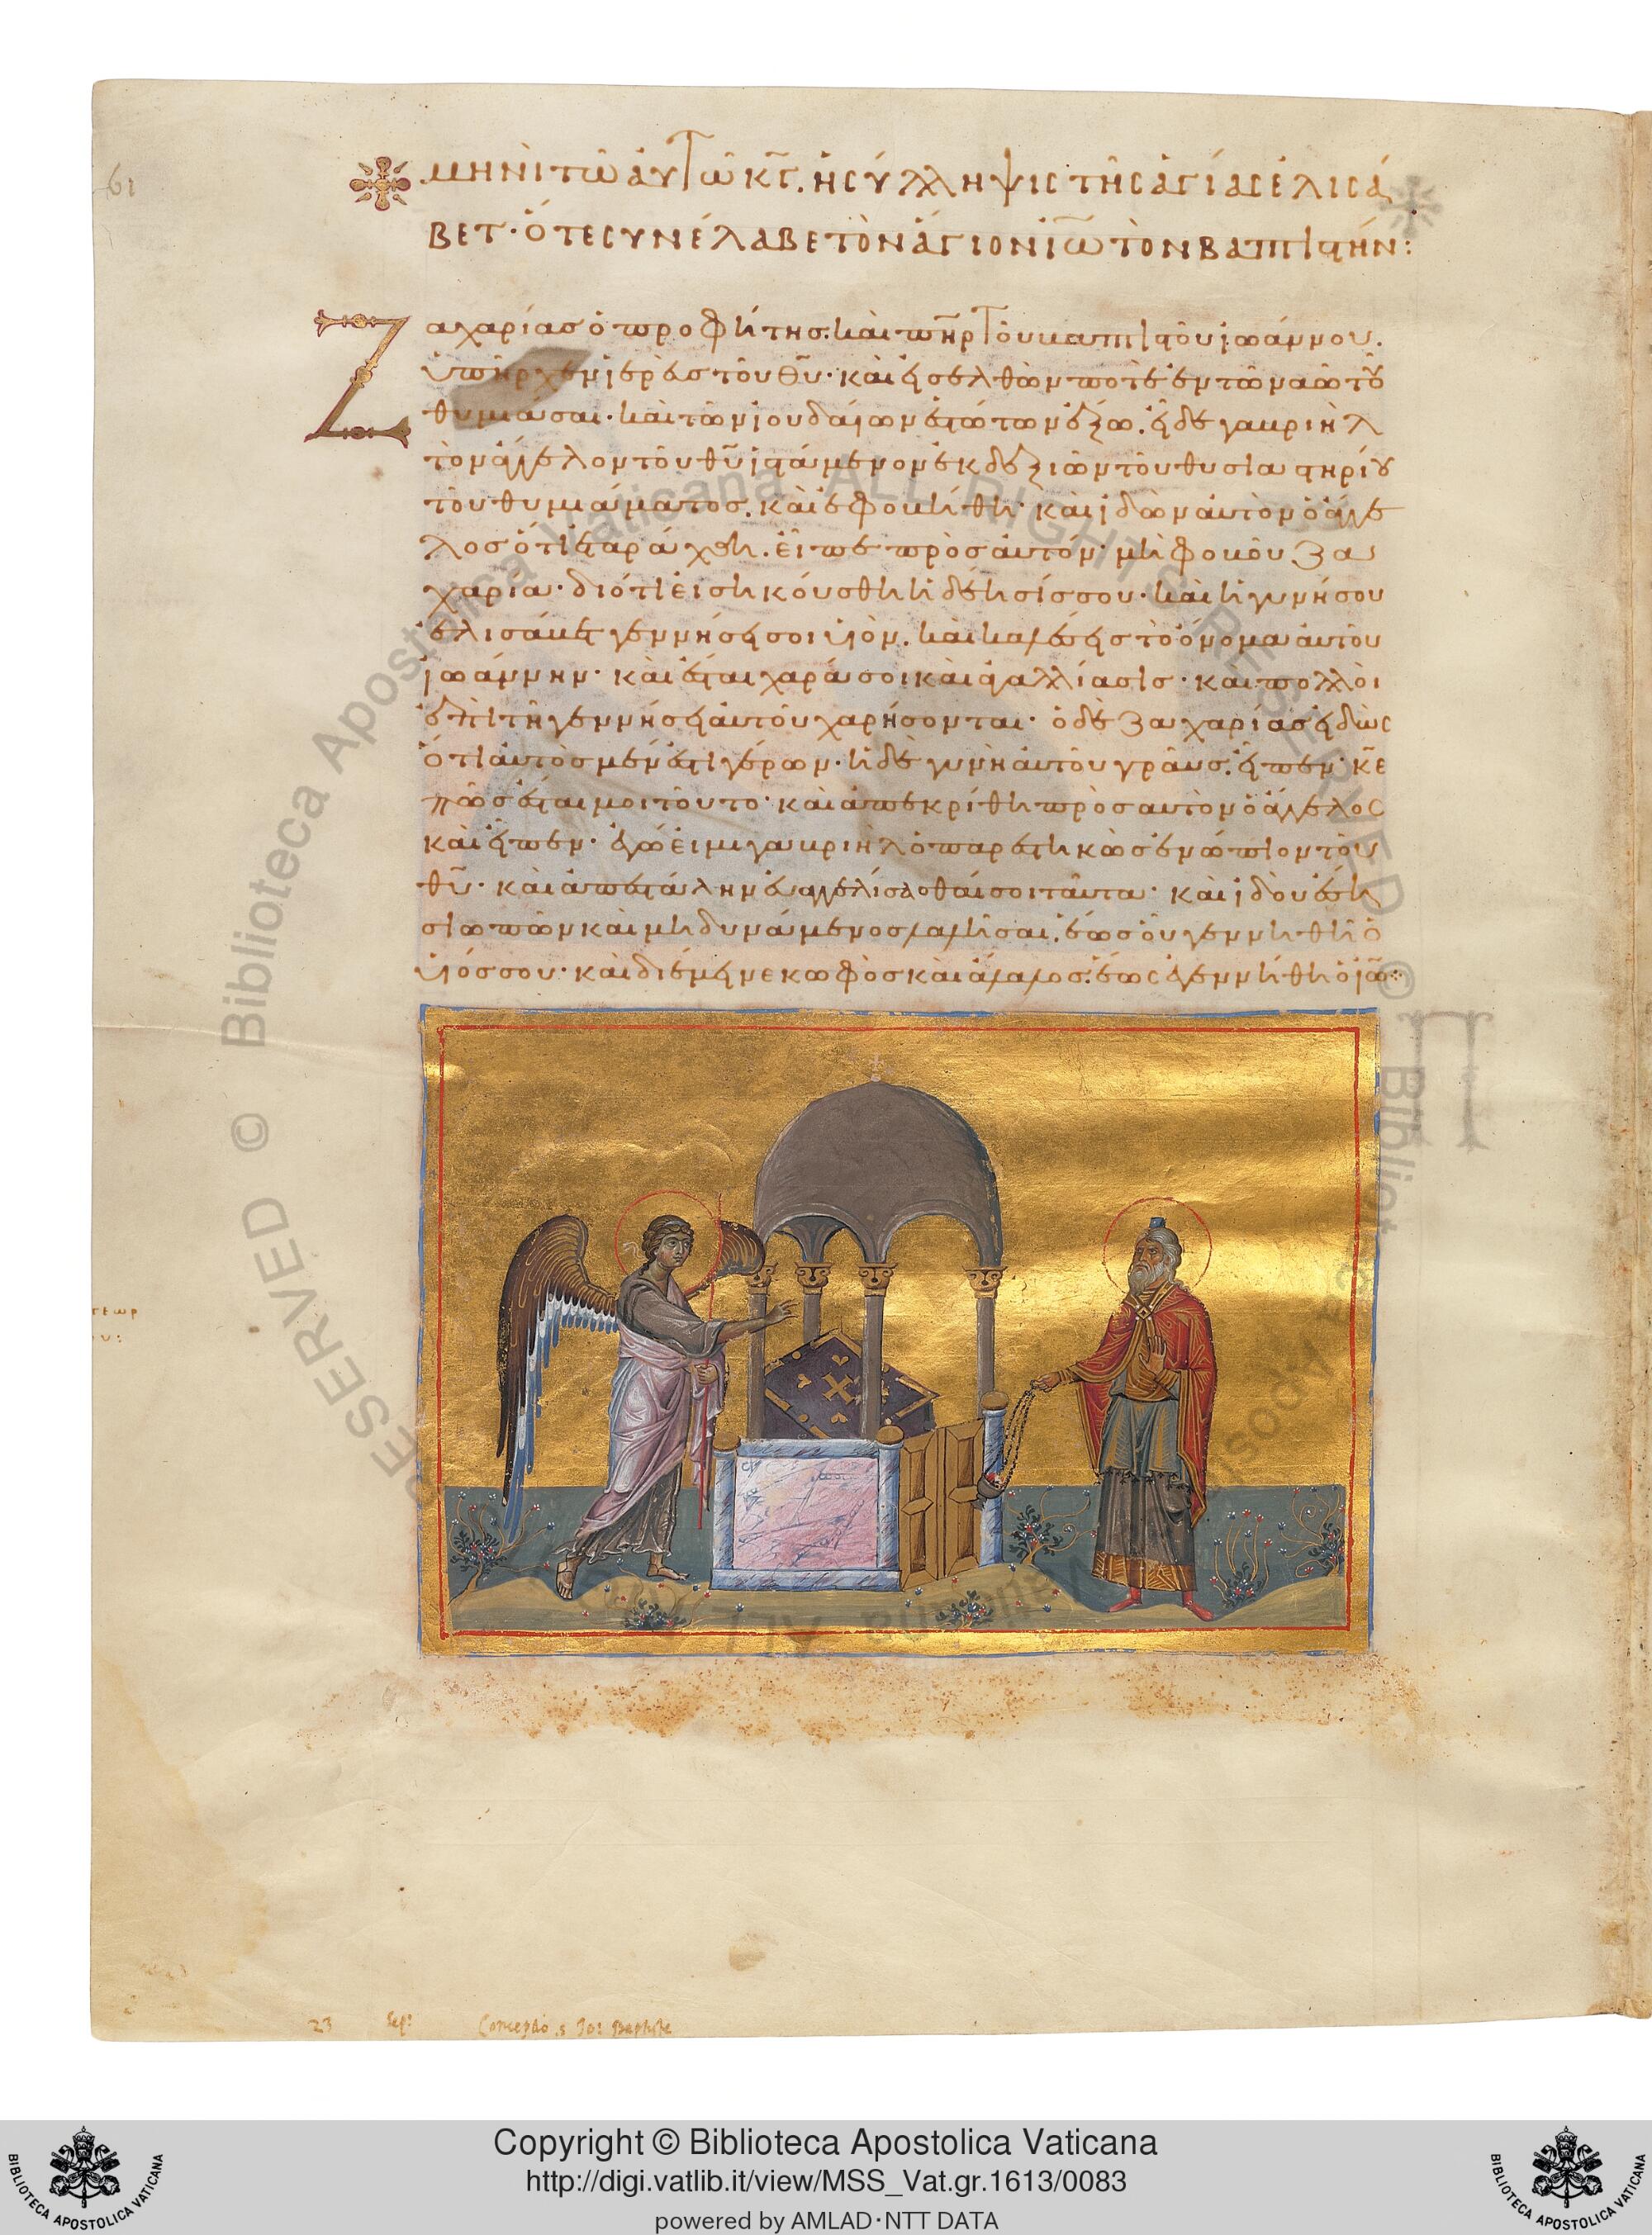 61
μηνὶ τῶ αὐτῶ κγ. ἡ σύλληψις τῆς ἁγίας ἐλισά
βετ· ὅτε συνέλαβε τὸν ἅγιον ἰω τὸν βαπτιστήν:
Ζαχαρίας ὁ προφήτης. καὶ πηρ τοῦ βαπτιστοῦ ἰωάννου.
ὑπῆρχεν ἱερεὺς τοῦ θυ· καὶ εἰσελθὼν ποτὲ ἐν τῶ ναῶ τοῦ
θυμιάσαι· καὶ τῶν ἰουδαίων ἑστώτων ἔξω. εἶδε γαβριὴλ
τὸν ἄγγελον τοῦ θυ ἱστάμενον ἐκ δεξιῶν τοῦ θυσιαστηρίου
τοῦ θυμιάματος. καὶ ἐφοβήθη· καὶ ἰδὼν αὐτὸν ὁ ἄγγε
λος ὅτι ἐταράχθη. εἶπε πρὸς αὐτόν· μὴ φοβοῦ ζα
χαρία· διότι εἰσηκούσθη ἡ δέησίς σου· καὶ ἡ γυνή σου
ἐλισάβετ γεννήσει σοι υἱόν. καὶ καλέσεις τὸ ὄνομα αὐτοῦ
ἰωάννην· καὶ ἔσται χαρά σοι καὶ ἀγαλλίασις· καὶ πολλοὶ
ἐπὶ τῆ γεννήσει αὐτοῦ χαρήσονται· ὁ δὲ ζαχαρίας εἰδὼς
ὅτι αὐτὸς μέν ἐστι γέρων· ἡ δὲ γυνὴ αὐτοῦ γραῦς. εἶπεν· κε
πῶς ἔσται μοι τοῦτο· καὶ ἀπεκρίθη πρὸς αὐτὸν ὁ ἄγγελος
καὶ εἶπεν· ἐγώ εἰμι γαβριὴλ ὁ παρεστηκὼς ἐνώπιον τοῦ
θυ· καὶ ἀπεστάλην εὐαγγελίσασθαί σοι ταῦτα· καὶ ἰδοὺ ἔση
σιωπῶν καὶ μὴ δυνάμενος λαλῆσαι. ἕως οὗ γεννηθῆ ὁ
υἱός σου· καὶ διέμεινε κωφὸς καὶ ἄλαλος. ἕως ἐγεννήθη ὁ ἰω:
23 Sep: Conceptio S Jo: Baptiste
Copyright © Biblioteca Apostolica Vaticana
http://digi.vatlib.it/view/MSS_Vat.gr.1613/0083
powered by AMLAD·NTT DATA
BIBLIOTECA APOSTOLICA VATICANA
BIBLIOTECA APOSTOLICA VATICANA
© Biblioteca Apostolica Vaticana ALL RIGHTS RESERVED